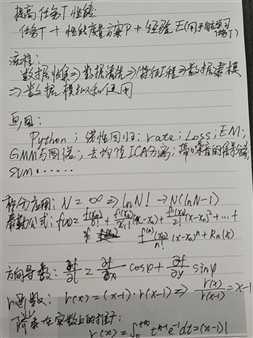 提高任务T性能
任务T + 性能度量方案P + 经验E
流程:
数据收集⇒数据清洗⇒特征工程⇒数据建模
⇒数据模型和使用
Python; 线性回归; rate; Loss; EM;
GMM与图像; 去均值ICA分离; 带
SVM······
N → ∞ ⇒ lnN! → N(lnN-1)
泰勒公式: f(x) = f(x₀)/0! + f'(x₀)/1! (x-x₀) + f''(x₀)/2! (x-x₀)² + ··· +
fⁿ(x₀)/n! (x-x₀)ⁿ + Rn(x)
方向导数: ∂f/∂l = ∂f/∂x cosφ + ∂f/∂y sinφ
r函数: r(x) = (x-1)·r(x-1) ⇒ r(x)/r(x-1) = x-1
阶乘在实数上的推广:
r(x) = ∫₀^{+∞} t^{x-1} e^{-t} dt = (x-1)!